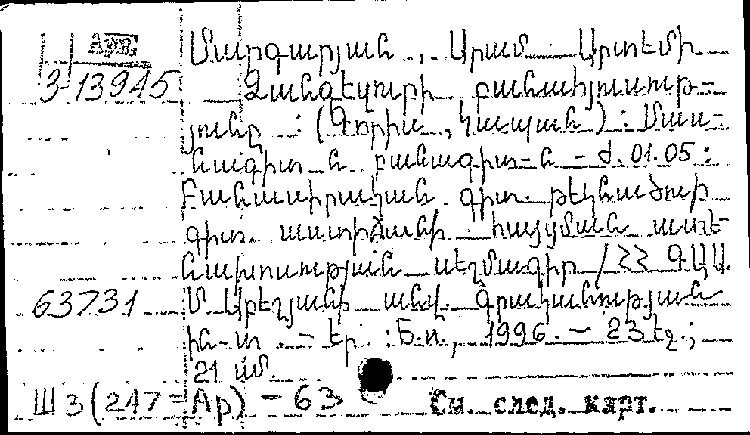 Арм.
3-13945
Մարգարյան, Արամ Արտեմի
Զանգեզուրի բանահյուսութ-
յունը : (Գորիս, Կապան) : Մաս-
նագիտ-ն բանագիտ-ն - Ժ.01.05 :
Բանասիրական գիտ. թեկնածուի
գիտ. աստիճանի հայցման ատե-
նախոսության սեղմագիր / ՀՀ ԳԱԱ.
63731 Մ. Աբեղյանի անվ. գրականության
ին-տ. - Եր. : Б.и., 1996. - 23 էջ ;
21 սմ.
Ш3(247=Ар) - 63 См. след. карт.